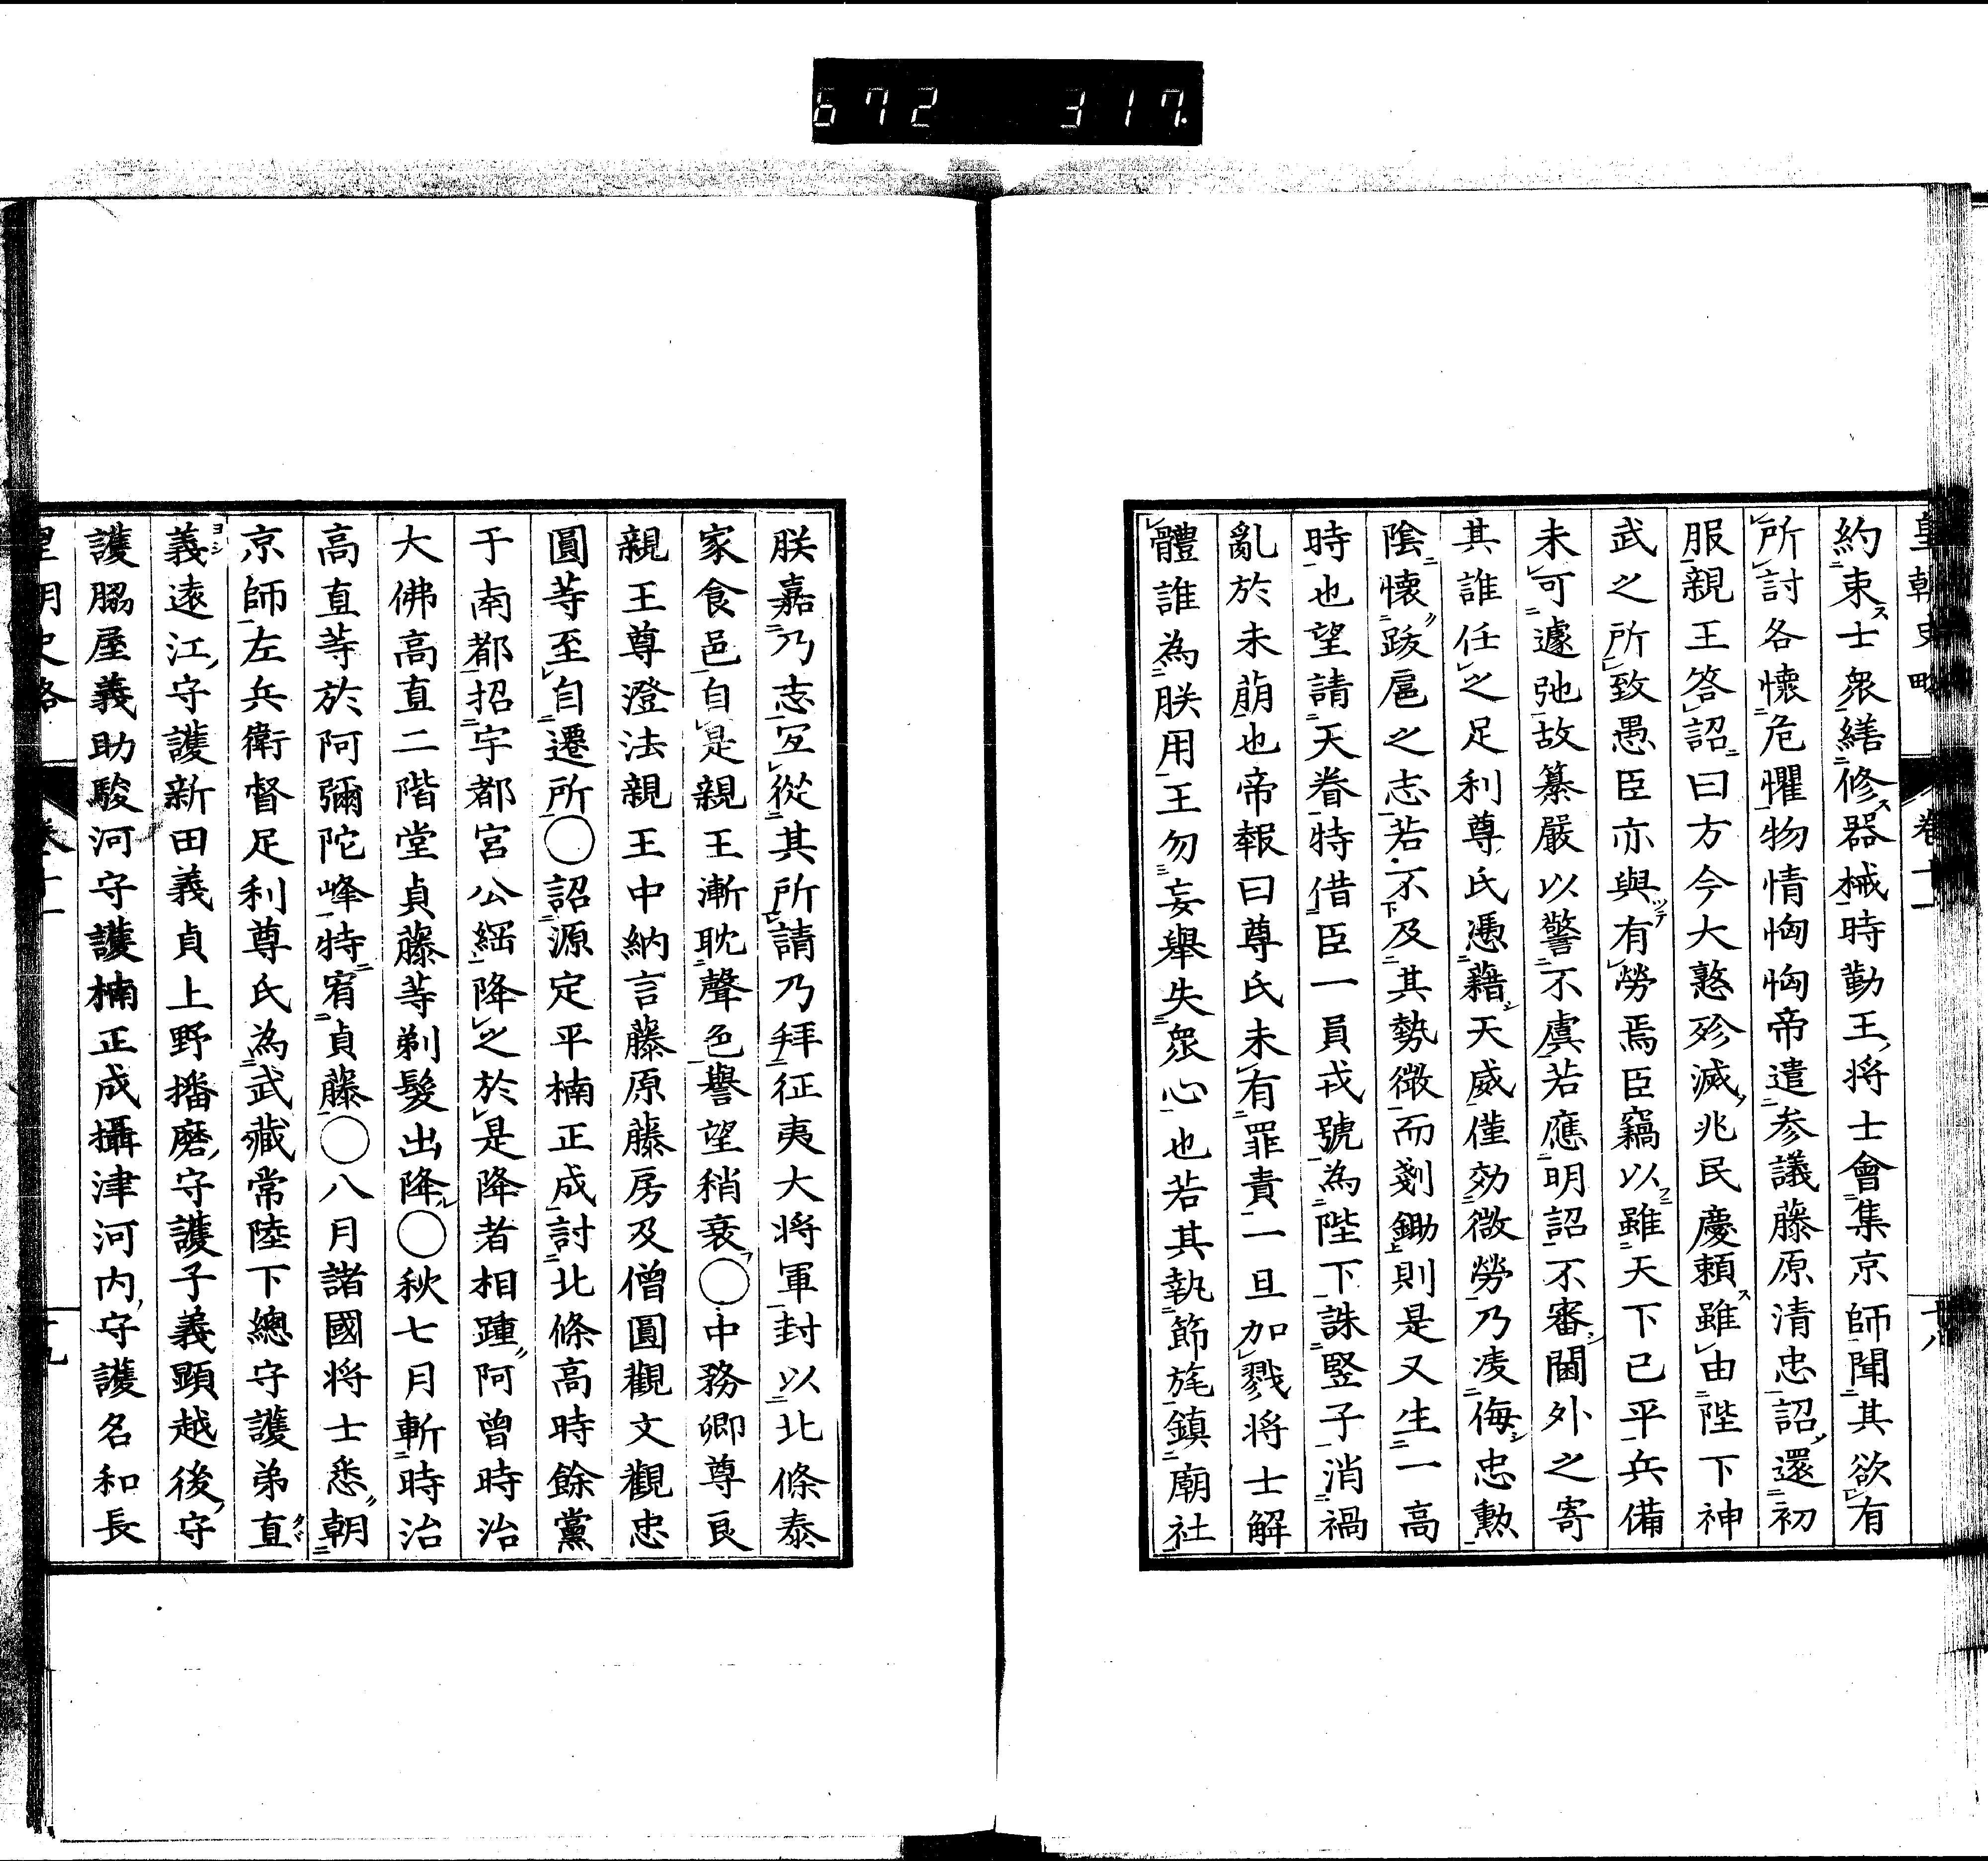 672 317
皇朝史略 卷十一 十八
約束士衆繕修器械時勤王將士會集京師聞其欲有
所討各懷危懼物情恟恟帝遣參議藤原清忠詔還初
服親王答詔曰方今大憝殄滅兆民慶賴雖由陛下神
武之所致愚臣亦與有勞焉臣竊以雖天下已平兵備
未可遽弛故纂嚴以警不虞若應明詔不審閫外之寄
其誰任之足利尊氏憑藉天威僅効微勞乃凌侮忠勲
陰懷跋扈之志若不及其勢微而剗鋤則是又生一高
時也望請天眷特借臣一員戎號為陛下誅竪子消禍
亂於未萠也帝報曰尊氏未有罪責一旦加戮將士解
體誰為朕用王勿妄舉失衆心也若其執節旄鎮廟社
朕嘉乃志宜從其所請乃拜征夷大将軍封以北條泰
家食邑自是親王漸耽聲色譽望稍衰〇中務卿尊良
親王尊澄法親王中納言藤原藤房及僧圓觀文觀忠
圓等至自遷所〇詔源定平楠正成討北條高時餘黨
于南都招宇都宮公綱降之於是降者相踵阿曾時治
大佛高直二階堂貞藤等剃髮出降〇秋七月斬時治
高直等於阿彌陀峰特宥貞藤〇八月諸國将士悉朝
京師左兵衛督足利尊氏為武藏常陸下總守護弟直
義遠江守護新田義貞上野播磨守護子義顕越後守
護脇屋義助駿河守護楠正成攝津河内守護名和長
皇朝史略 卷十一 十九